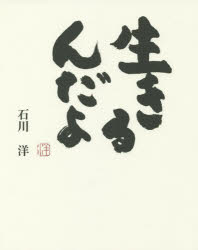 生きる
んだよ
石川 洋
洋